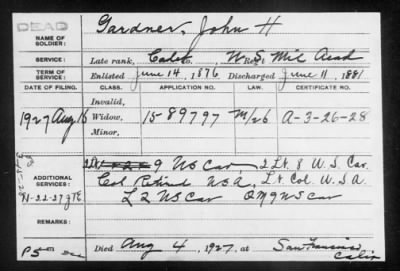 DEAD
NAME OF SOLDIER: Gardner, John H
SERVICE: Late rank, Cadet, U.S. Mil Acad
TERM OF SERVICE: Enlisted June 14, 1876, Discharged June 11, 1881
DATE OF FILING. CLASS. APPLICATION NO. LAW. CERTIFICATE NO.
Invalid,
1927 Aug 16 Widow, 1589797 M/26 A-3-26-28
Minor,
9 US Cav 2 Lt. 8 U.S. Cav.
ADDITIONAL SERVICES: Col Retired USA, Lt Col. U.S.A
11-22-27 L 2 US Cav QM 9 US Cav
REMARKS:
Died Aug 4, 1927, at San Francisco, Calif